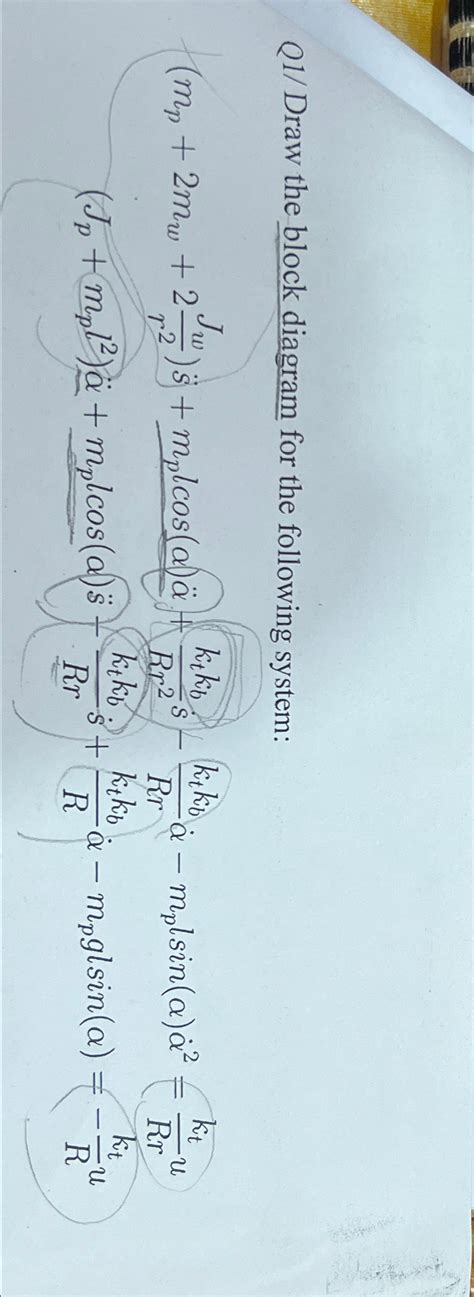 Q1/ Draw the block diagram for the following system:
(m_p + 2m_w + 2\frac{J_w}{r^2})\ddot{s} + m_p l cos(α)\ddot{α} + \frac{k_t k_b}{Rr^2}\dot{s} − \frac{k_t k_b}{Rr}\dot{α} − m_p l sin(α)\dot{α}^2 = \frac{k_t}{Rr}u
(J_p + m_p l^2)\ddot{α} + m_p l cos(α)\ddot{s} − \frac{k_t k_b}{Rr}\dot{s} + \frac{k_t k_b}{R}\dot{α} − m_p g l sin(α) = −\frac{k_t}{R}u